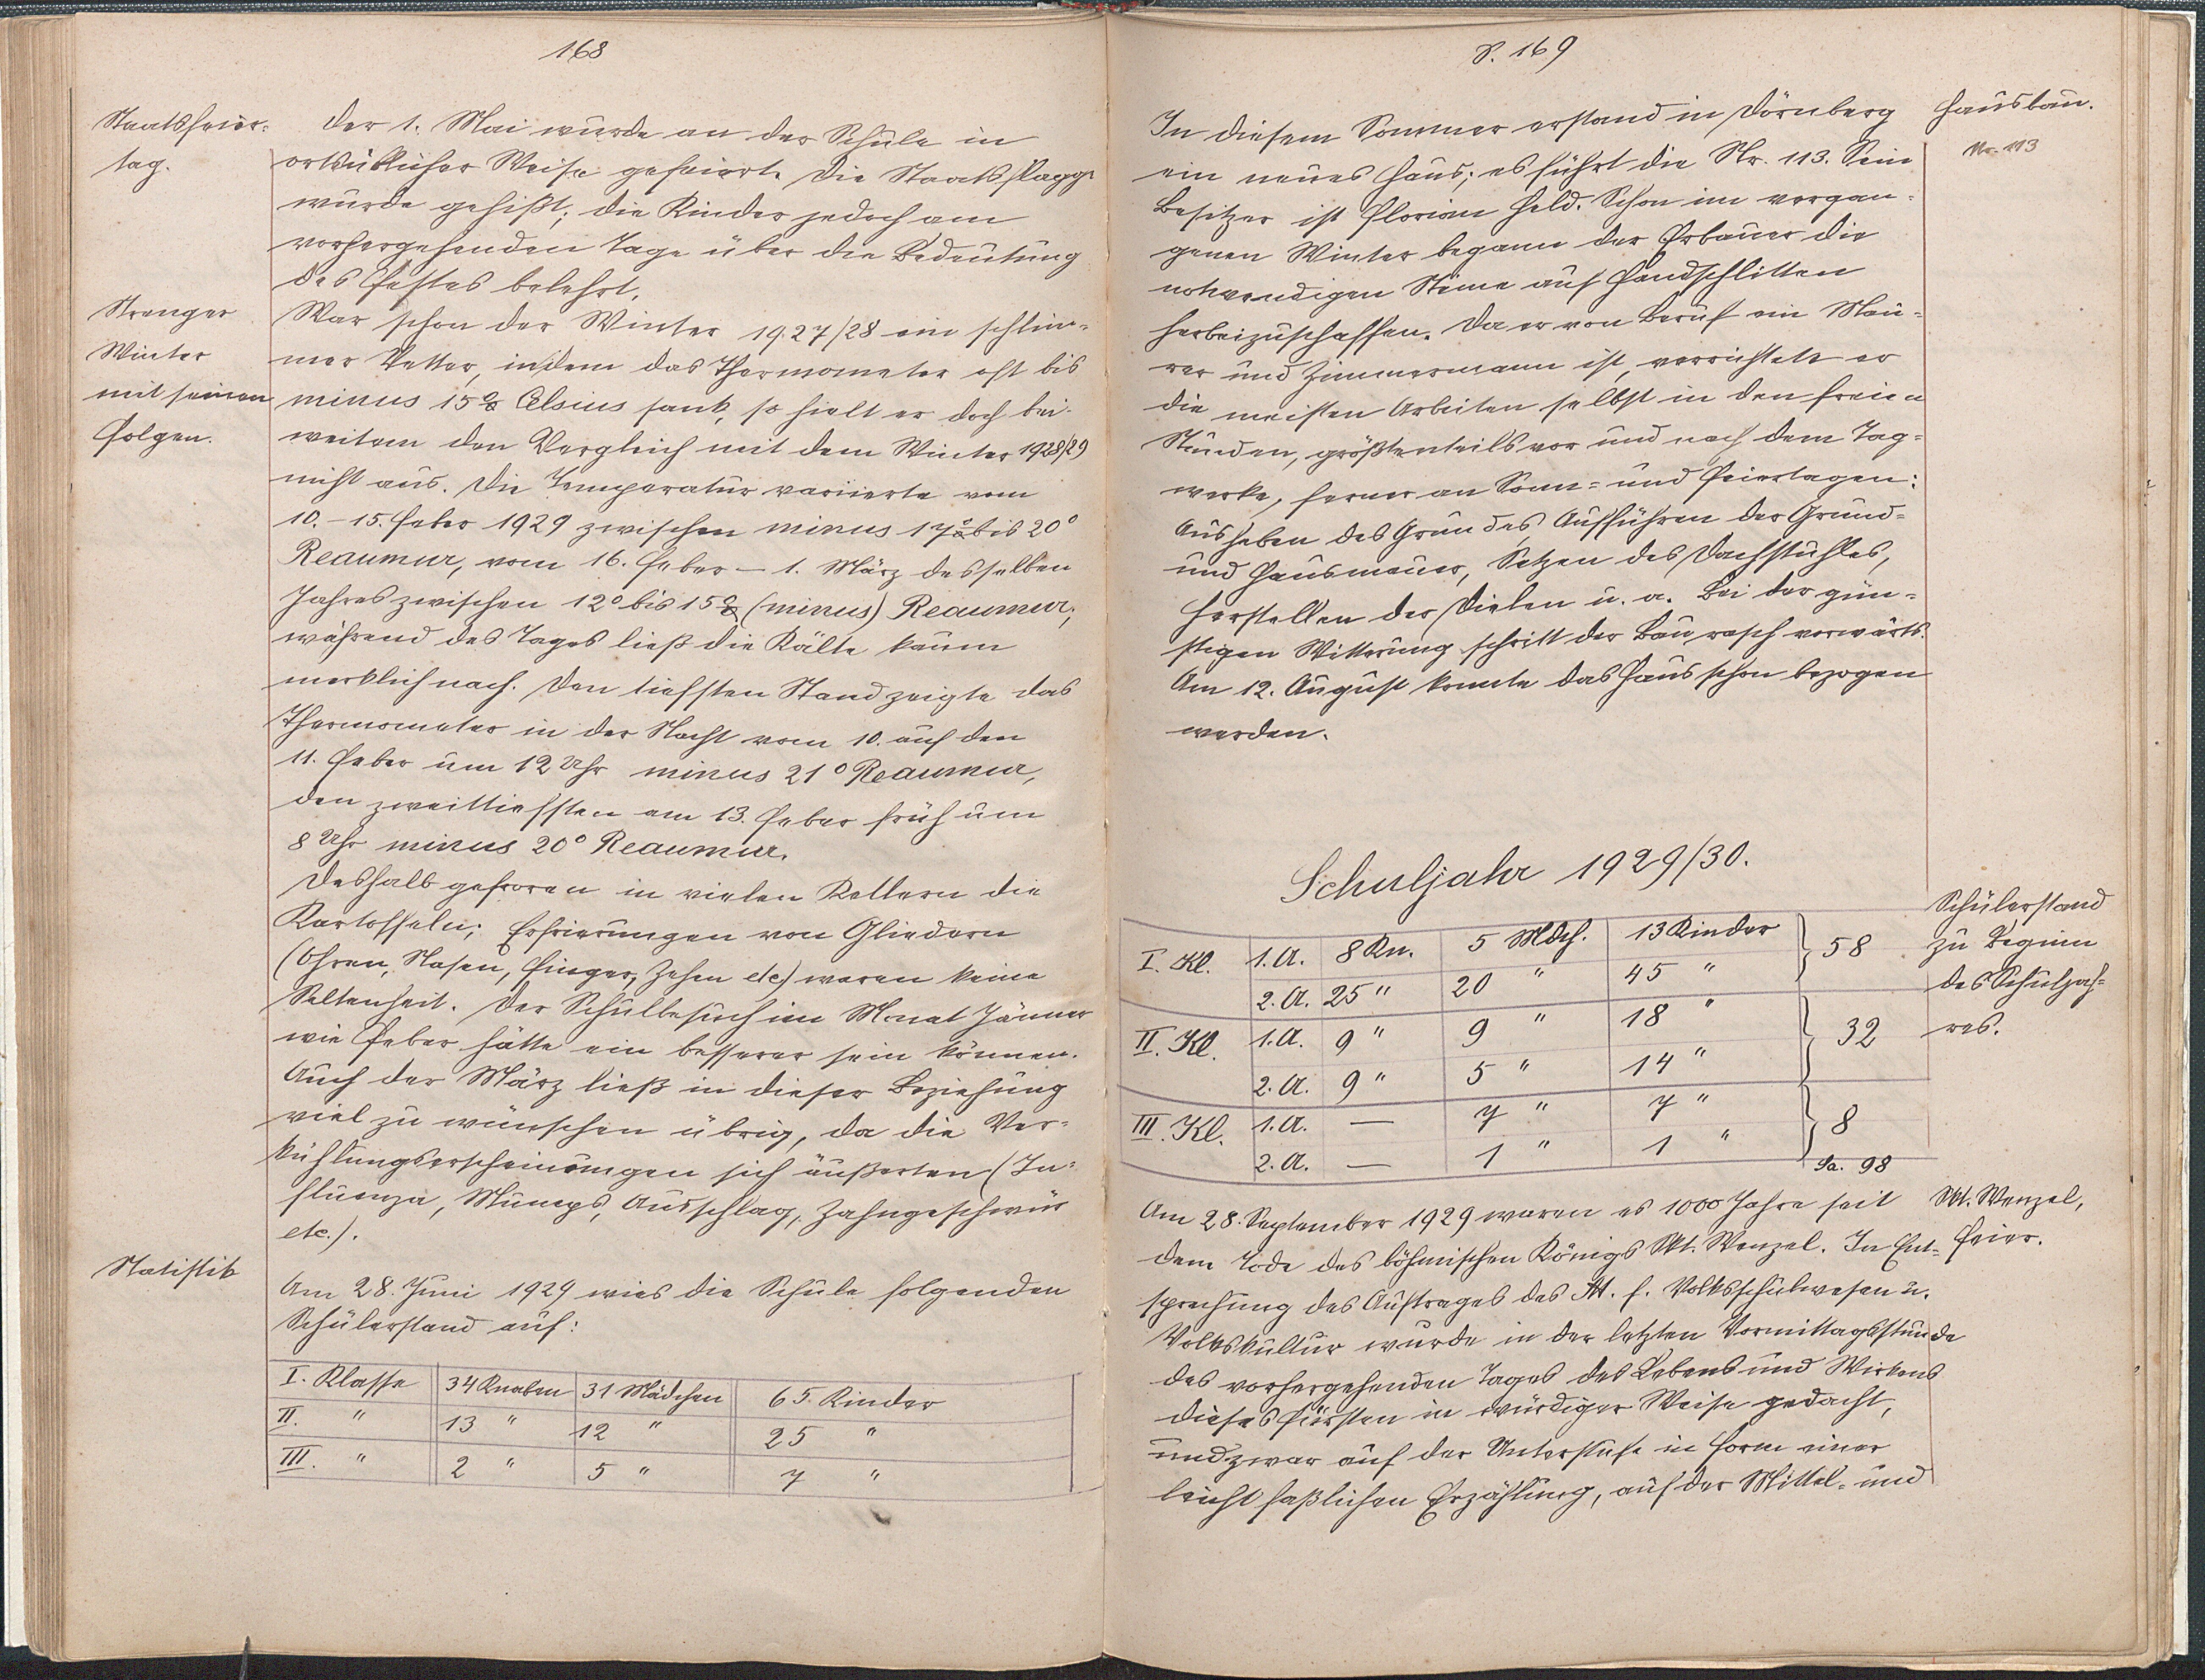 168
Staatsfeier-
tag.
Der 1. Mai wurde an der Schule in
ortsüblicher Weise gefeiert. Die Staatsflagge
wurde gehißt; die Kinder jedoch am
vorhergehenden Tage über die Bedeutung
des Festes belehrt.
Strenger
Winter
mit seinen
Folgen.
War schon der Winter 1927/28 ein schlim-
mer Vetter, indem das Thermometer oft bis
minus 15° Celsius sank, so hielt er doch bei-
weitem den Vergleich mit dem Winter 1928/29
nicht aus. Die Temperatur variierte vom
10.-15. Feber 1929 zwischen minus 17° bis 20°
Reaumur, vom 16. Feber - 1. März desselben
Jahres zwischen 12° bis 15° (minus) Reaumur;
während des Tages ließ die Kälte kaum
merklich nach. Den tiefsten Stand zeigte das
Thermometer in der Nacht vom 10. auf den
11. Feber um 12 Uhr minus 21° Reaumur,
den zweittiefsten am 13. Feber früh um
8 Uhr minus 20° Reaumur.
Deshalb gefroren in vielen Kellern die
Kartoffeln; Erfrierungen von Gliedern
(Ohren, Nasen, Finger, Zehen etc) waren keine
Seltenheit. Der Schulbesuch im Monat Jänner
wie Feber hätte ein besserer sein können.
Auch der März ließ in dieser Beziehung
viel zu wünschen übrig, da die Ver-
kühlungserscheinungen sich äußerten (In-
fluenza, Mumps, Ausschlag, Zahngeschwür
etc.).
Statistik
Am 28. Juni 1929 wies die Schule folgenden
Schülerstand auf:
I. Klasse 34 Knaben 31 Mädchen 65 Kinder
II. " 13 " 12 " 25 "
III. " 2 " 5 " 7 "
S. 169
Hausbau.
Nr. 113
In diesem Sommer erstand in Dörnberg
ein neues Haus; es führt die Nr. 113. Sein
Besitzer ist Florian Held. Schon im vergan-
genen Winter begann der Erbauer die
notwendigen Steine auf Handschlitten
herbeizuschaffen. Da er von Beruf ein Mau-
rer und Zimmermann ist, verrichtete er
die meisten Arbeiten selbst in den freien
Stunden, größtenteils vor und nach dem Tag-
werke, ferner an Sonn- und Feiertagen:
Ausheben des Grundes, Aufführen der Grund-
und Hausmauer, Setzen des Dachstuhles,
Herstellen der Dielen u. a. Bei der gün-
stigen Witterung schritt der Bau rasch vorwärts.
Am 12. August konnte das Haus schon bezogen
werden.
Schuljahr 1929/30.
Schülerstand
zu Beginn
des Schuljah-
res.
I. Kl. 1. A. 8 Kn. 5 Mdch. 13 Kinder } 58
2. A. 25 " 20 " 45 "
II. Kl. 1. A. 9 " 9 " 18 " } 32
2. A. 9 " 5 " 14 "
III. Kl. 1. A. — 7 " 7 " } 8
2. A. — 1 " 1 "
Sa. 98
Skt. Wenzel,
Feier.
Am 28. September 1929 waren es 1000 Jahre seit
dem Tode des böhmischen Königs Skt. Wenzel. In Ent-
sprechung des Auftrages des M. f. Volksschulwesen u.
Volkskultur wurde in der letzten Vormittagsstunde
des vorhergehenden Tages des Lebens und Wirkens
dieses Fürsten in würdiger Weise gedacht,
und zwar auf der Unterstufe in Form einer
leicht faßlichen Erzählung, auf der Mittel- und